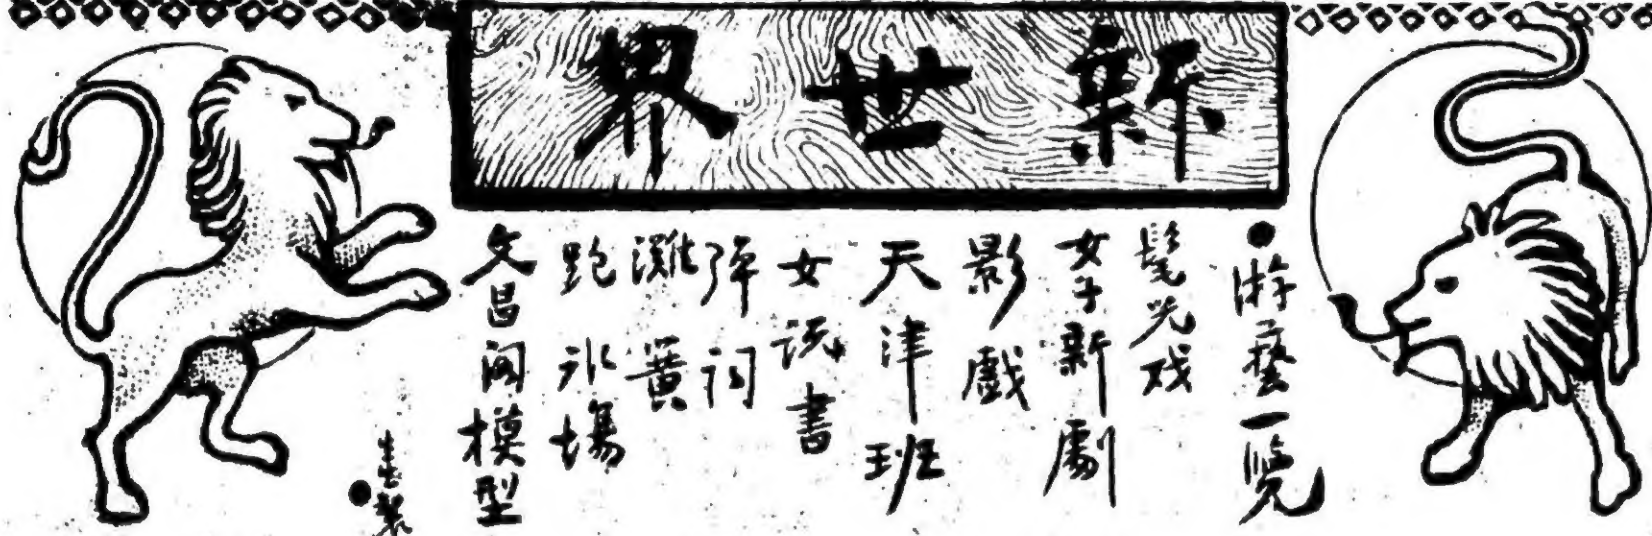 新世界
●游藝一覽
髦兒戏
女子新劇
影戲
天津班
女説書
弹词
灘簧
跑冰場
文昌閣模型